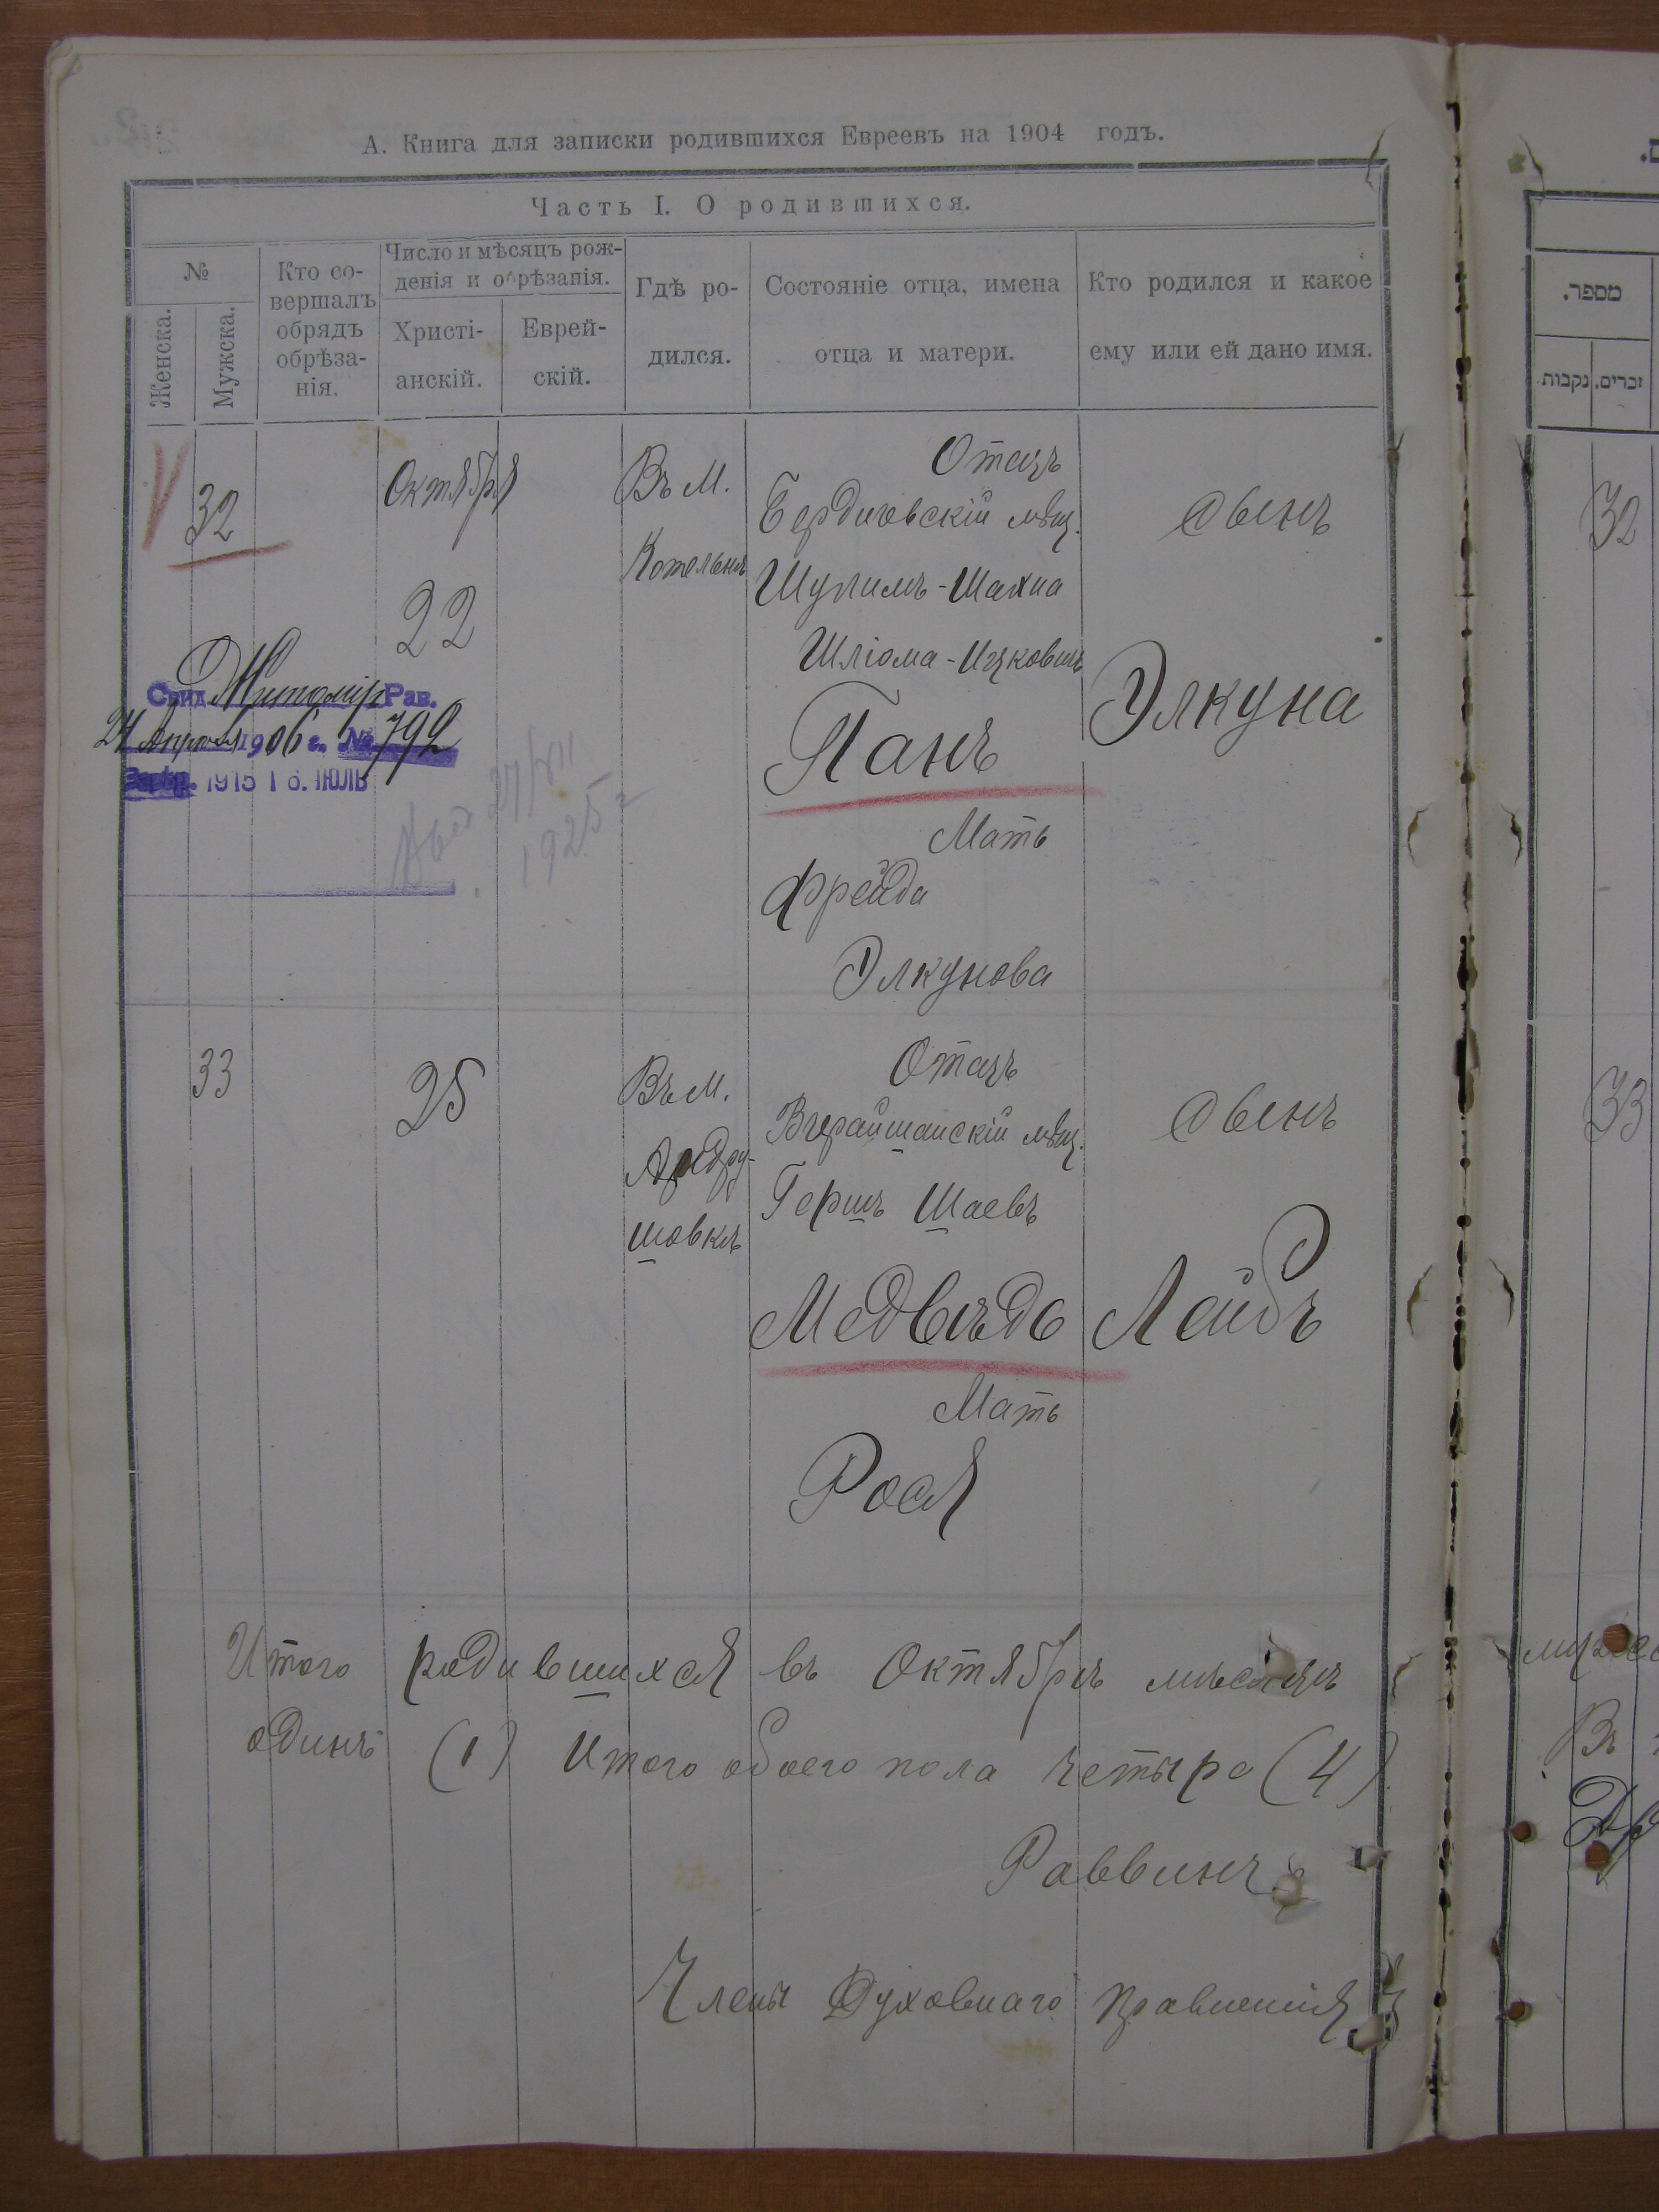 А. Книга для записки родившихся Евреевъ на 1904 годъ.
Часть I. О родившихся.
№
Женска.
Мужска.
Кто со-
вершалъ
обрядъ
обрѣза-
нія.
Число и мѣсяцъ рож-
денія и обрѣзанія.
Христі-
анскій.
Еврей-
скій.
Гдѣ ро-
дился.
Состояніе отца, имена
отца и матери.
Кто родился и какое
ему или ей дано имя.
32
Октября
22
Въ М.
Котельнѣ
Отецъ
Бердичевскій мѣщ.
Шулимъ-Шахна
Шліома-Ицковичъ
Панъ
Мать
Фрейда
Элкунова
Сынъ
Элкуна
Свид. Житомір Рав.
24 Апреля 1906 г. № 792
1915 16. ІЮЛЬ
27/VII
1925 г
33
25
Въ М.
Андру-
шовкѣ
Отецъ
Вчерайшанскій мѣщ.
Гершъ Шаевъ
Медвѣдь
Мать
Рося
Сынъ
Лейбъ
Итого родившихся въ Октябрѣ мѣсяцѣ
одинъ (1) Итого обоего пола четыре (4)
Раввинъ
Члены Духовнаго Правленія
מספר.
זכרים.
נקבות
32
33
Въ